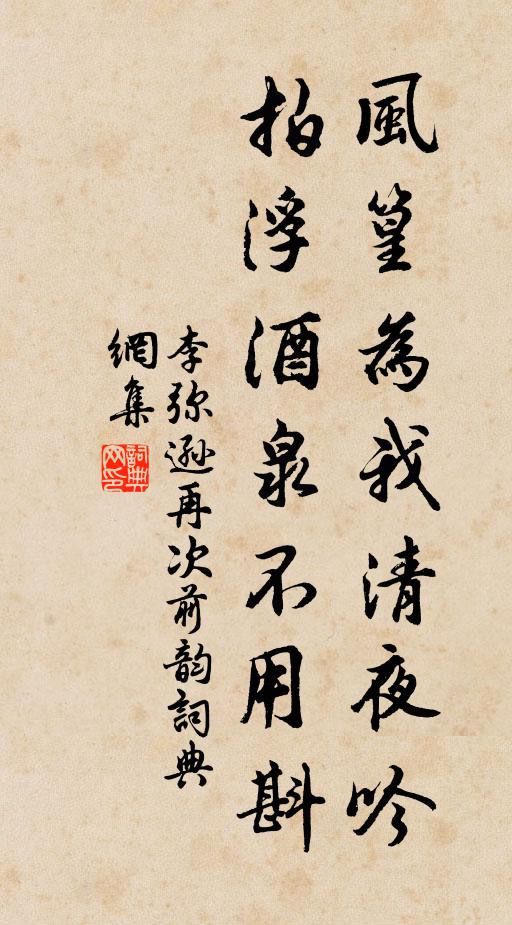 風篁為我清夜吟
拍浮酒泉不用斟
李弥遜再次前韵詞典
網集
詞典
网印